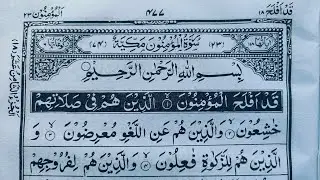 قَدْ اَفْلَحَ ١٨ ٤٧٧ اَلْمُؤْمِنُوْن ٢٣
(٢٣) سُوْرَةُ الْمُؤْمِنُوْنَ مَكِّيَّةٌ (٧٤)
بِسْمِ اللّٰهِ الرَّحْمٰنِ الرَّحِيْمِ
قَدْ اَفْلَحَ الْمُؤْمِنُوْنَ ١ الَّذِيْنَ هُمْ فِىْ صَلَاتِهِمْ
خٰشِعُوْنَ ٢ وَالَّذِيْنَ هُمْ عَنِ اللَّغْوِ مُعْرِضُوْنَ ٣ وَ
الَّذِيْنَ هُمْ لِلزَّكٰوةِ فٰعِلُوْنَ ٤ وَالَّذِيْنَ هُمْ لِفُرُوْجِهِمْ